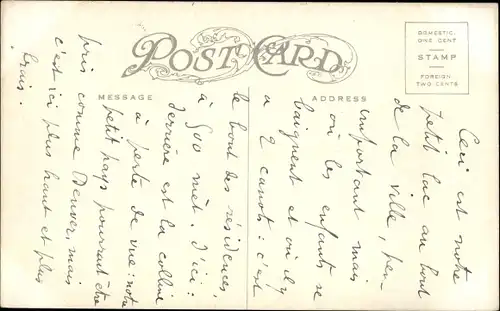 POST CARD
DOMESTIC
ONE CENT
STAMP
FOREIGN
TWO CENTS
MESSAGE
ADDRESS
Ceci est notre
petit lac au bout
de la ville, peu
important mais
où les enfants se
baignent et où il y
a 2 canots: c'est
le bout des résidences,
à 500 mèt. d'ici:
derrière est la colline
à perte de vue: notre
petit pays pourrait être
pris comme Denver, mais
c'est ici plus haut et plus
frais.